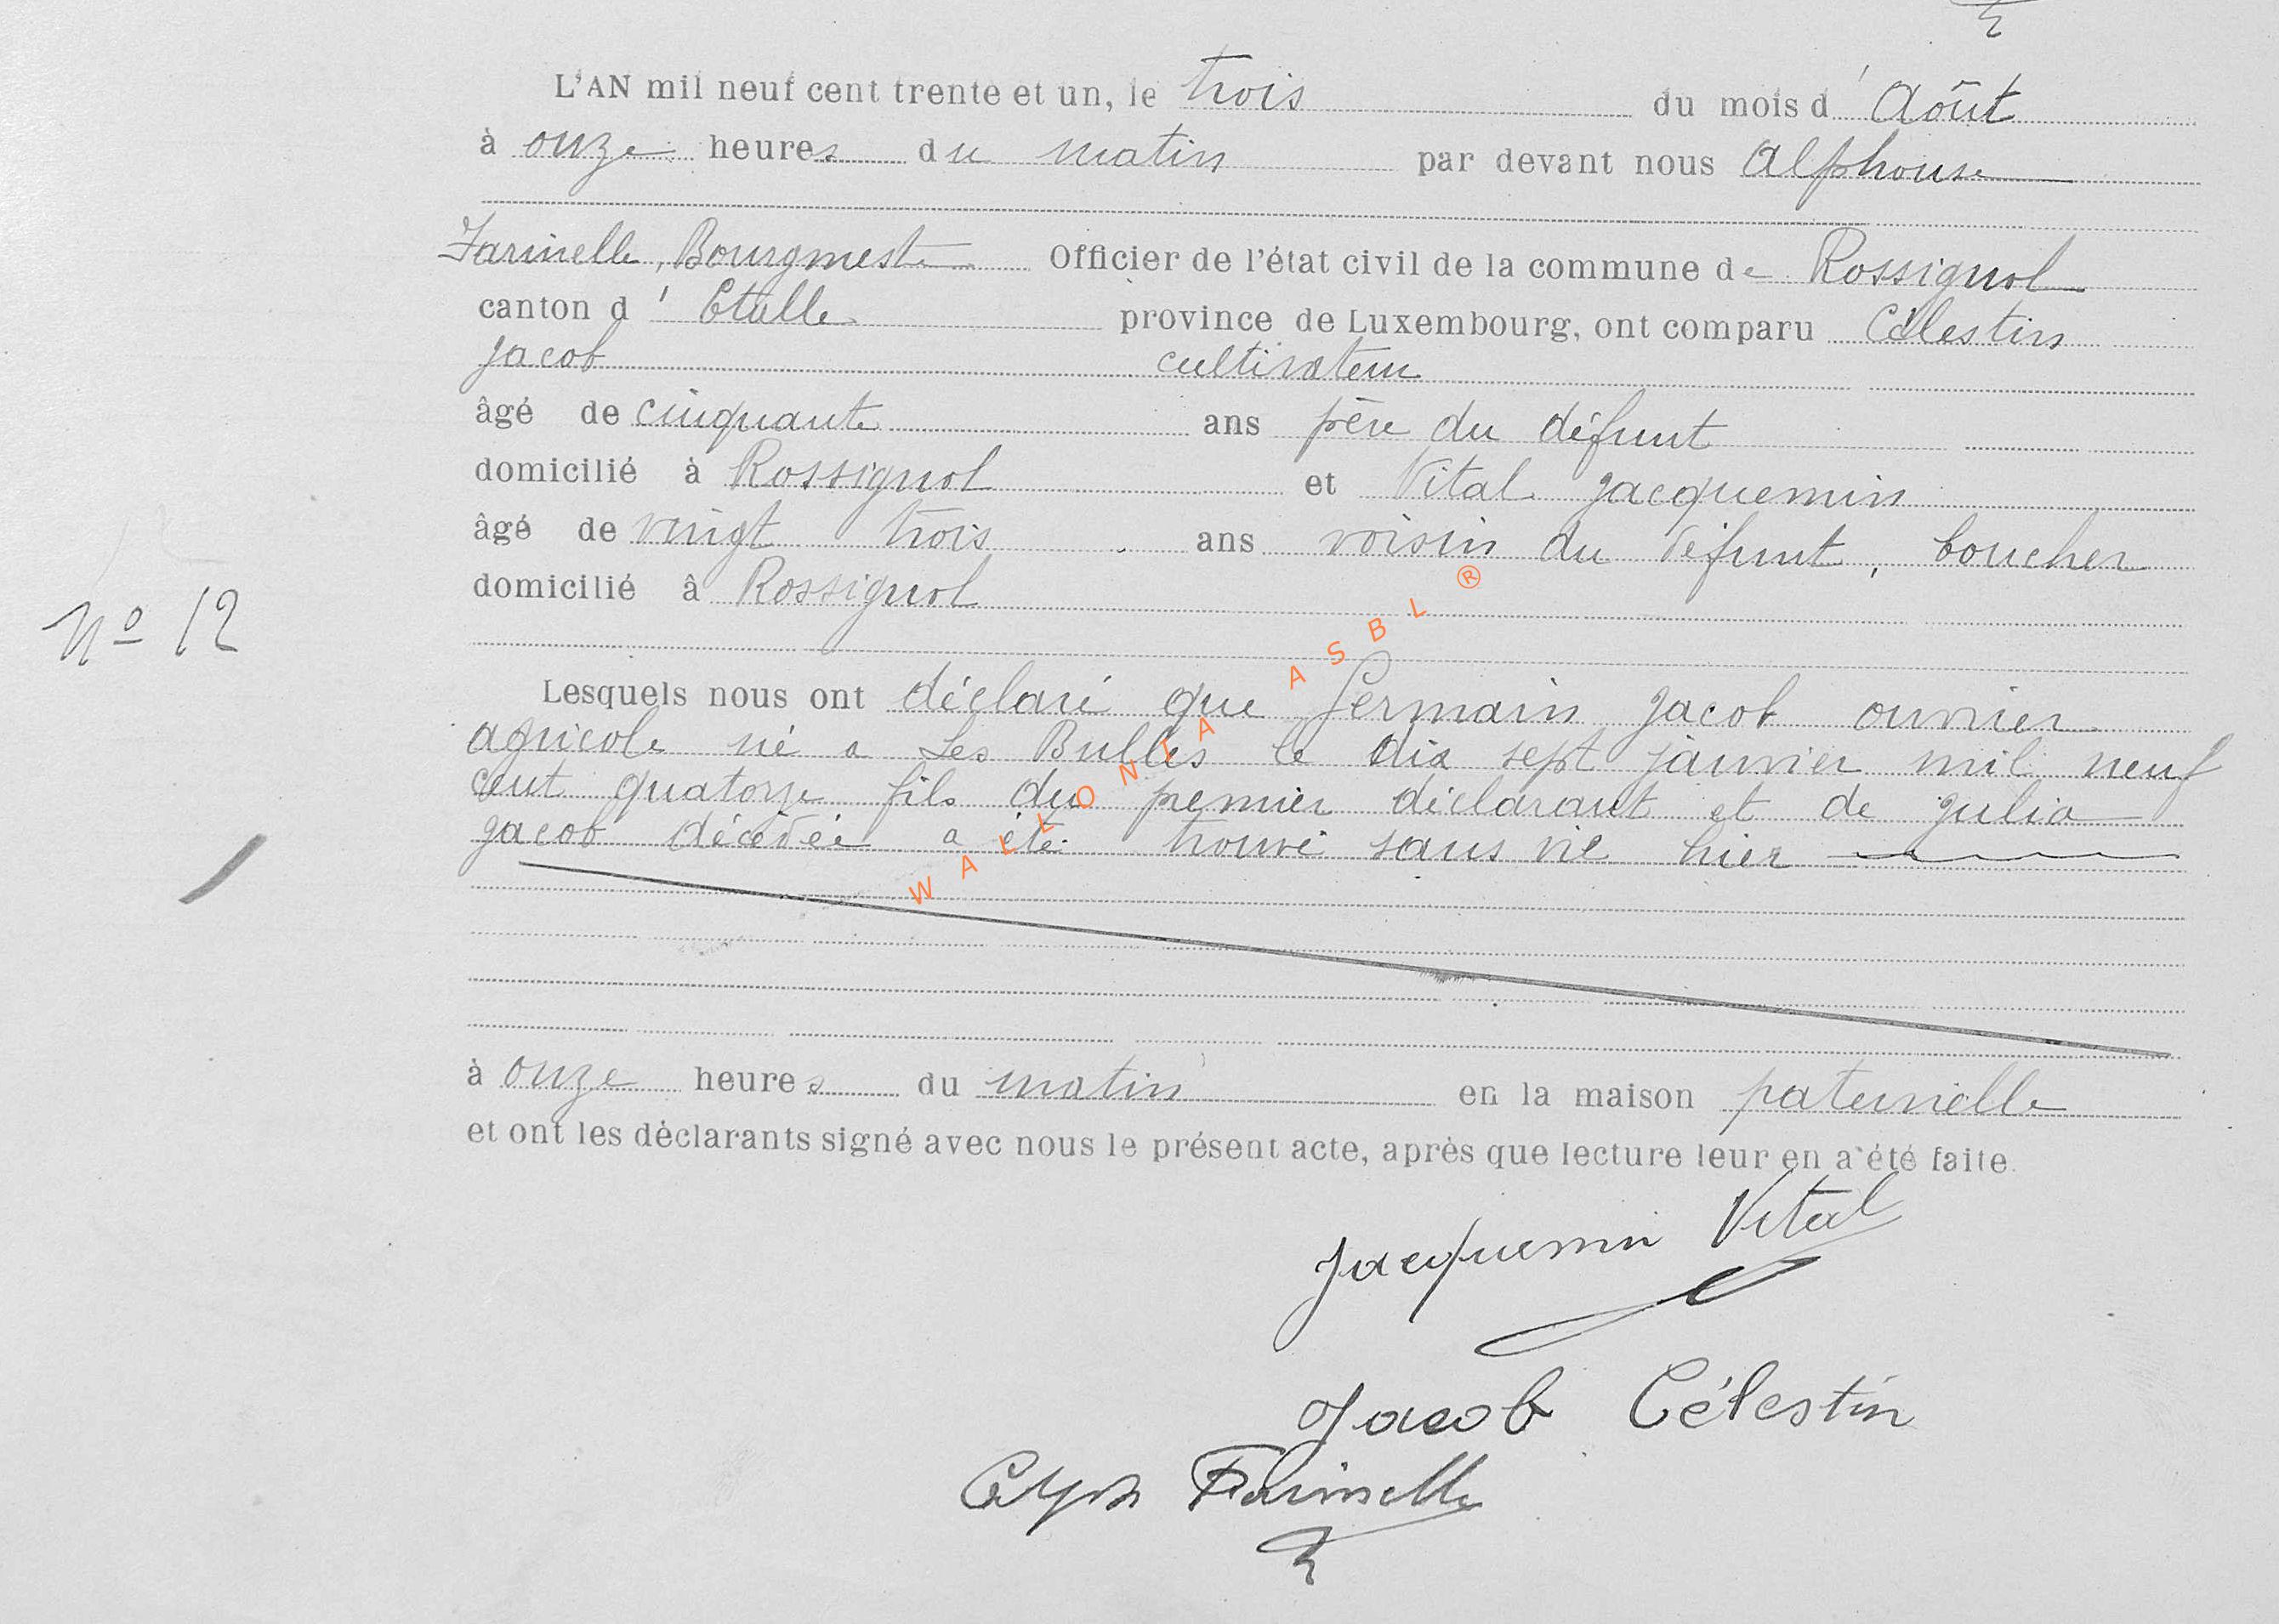 L'AN mil neuf cent trente et un, le trois du mois d'Août
à onze heures du matin par devant nous Alphonse
Farinelle, Bourgmestre Officier de l'état civil de la commune de Rossignol
canton d'Etalle province de Luxembourg, ont comparu Célestin
Jacob cultivateur
âgé de cinquante ans père du défunt
domicilié à Rossignol et Vital Jacquemin
âgé de vingt trois ans voisin du défunt, boucher
domicilié â Rossignol
N° 12
Lesquels nous ont déclaré que Germain Jacob ouvrier
agricole né a Les Bulles le dix sept janvier mil neuf
cent quatorze fils du premier déclarant et de Julia
Jacob décédée a été trouvé sans vie hier
WALLONIA ASBL ®
à onze heures du matin en la maison paternelle
et ont les déclarants signé avec nous le présent acte, après que lecture leur en a été faite.
Jacquemin Vital
Jacob Célestin
Alph Farinelle